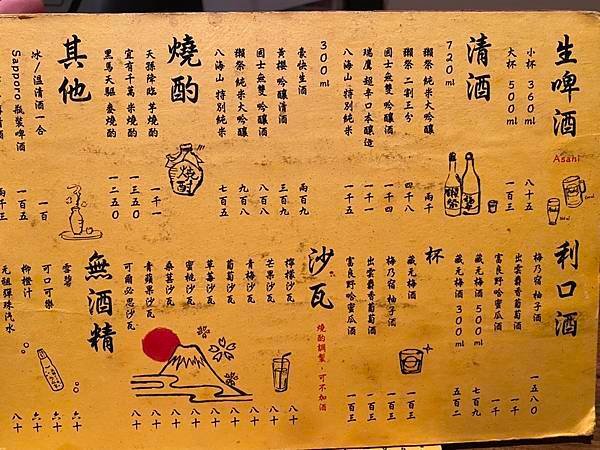 生啤酒
Asahi
小杯 360ml 八十五
大杯 500ml 一百三
清酒
720ml
獺祭 純米大吟釀 兩千
獺祭 二割三分 四千八
國士無雙 吟釀酒 一千四
瑞鷹 超辛口本釀造 一千四
八海山 特別純米 一千五
300ml
豪快生酒 兩百九
黃櫻 吟釀清酒 三百九
國士無雙 吟釀酒 八百八
獺祭 純米大吟釀 九百八
八海山 特別純米 七百五
燒酌
燒酎
天孫降臨 芋燒酌 一千一
宜有千萬 米燒酌 一三五0
黑馬天驅 麥燒酌 一二五0
其他
冰/溫清酒一合 一百
Sapporo 瓶裝啤酒 一百五
兩千三
利口酒
梅乃宿 柚子酒 一五八0
出雲麝香葡萄酒 一千
富良野哈蜜瓜酒 一千
藏元梅酒 500ml 七百九
藏元梅酒 300ml 五百二
杯
藏元梅酒 一百三
梅乃宿 柚子酒 一百三
出雲麝香葡萄酒 一百三
富良野哈蜜瓜酒 一百三
沙瓦
燒酌調製，可不加酒
檸檬沙瓦 八十
芒果沙瓦 八十
青梅沙瓦 八十
葡萄沙瓦 八十
草莓沙瓦 八十
蜜桃沙瓦 八十
桑葚沙瓦 八十
青蘋果沙瓦 八十
可爾必思沙瓦 八十
無酒精
雪碧 六十
可口可樂 六十
柳橙汁 六十
元祖彈珠汽水 八十